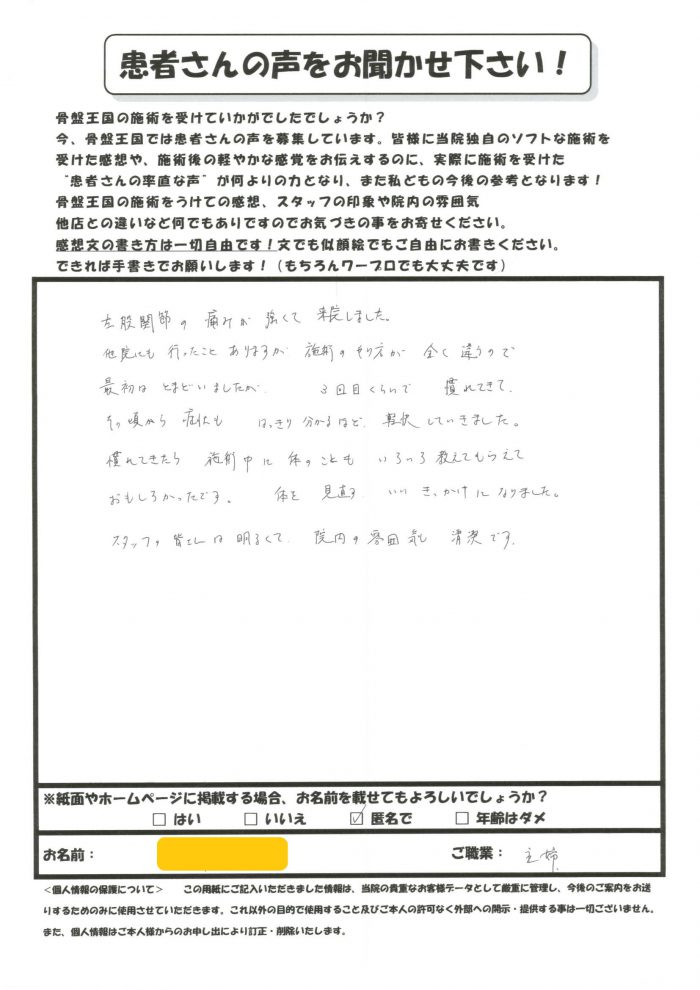 患者さんの声をお聞かせ下さい！
骨盤王国の施術を受けていかがでしたでしょうか？
今、骨盤王国では患者さんの声を募集しています。皆様に当院独自のソフトな施術を
受けた感想や、施術後の軽やかな感覚をお伝えするのに、実際に施術を受けた
“患者さんの率直な声”が何よりの力となり、また私どもの今後の参考となります！
骨盤王国の施術をうけての感想、スタッフの印象や院内の雰囲気
他店との違いなど何でもありですのでお気づきの事をお寄せください。
感想文の書き方は一切自由です！文でも似顔絵でもご自由にお書きください。
できれば手書きでお願いします！（もちろんワープロでも大丈夫です）
左股関節の痛みが強くて来院しました。
他院にも行ったことありますが施術のやり方が全く違うので
最初はとまどいましたが、3回目くらいで慣れてきて、
その頃から症状もはっきり分かるほど、軽快していきました。
慣れてきたら施術中に体のこともいろいろ教えてもらえて
おもしろかったです。体を見直すいいきっかけになりました。
スタッフの皆さんは明るくて、院内の雰囲気も清潔です。
※紙面やホームページに掲載する場合、お名前を載せてもよろしいでしょうか？
□ はい □ いいえ ☑ 匿名で □ 年齢はダメ
お名前： ご職業： 主婦
＜個人情報の保護について＞ この用紙にご記入いただきました情報は、当院の貴重なお客様データとして厳重に管理し、今後のご案内をお送
りするためのみに使用させていただきます。これ以外の目的で使用すること及びご本人の許可なく外部への開示・提供する事は一切ございません。
また、個人情報はご本人様からのお申し出により訂正・削除いたします。